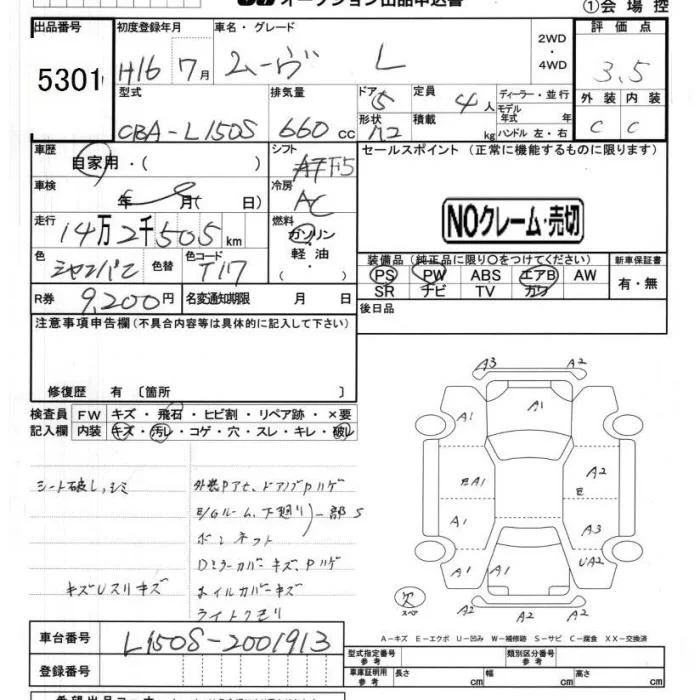 オークション出品申込書
①会場控
出品番号 初度登録年月 車名・グレード 評価点
5301 H16 7月 ムーヴ L 2WD・4WD 3.5
型式 排気量 ドア 定員 ディーラー・並行 外装 内装
CBA-L150S 660cc 5 4人 モデル年式 年 C C
形状 積載 kg ハンドル 左・右
車歴 シフト セールスポイント (正常に機能するものに限ります)
自家用・( )
車検 冷房
年 月( 日) AC
NOクレーム・売切
走行 燃料
14万2千505km ガソリン・軽油・( )
色 色替 色コード
シャンパン T17
装備品 (純正品に限り○をつけてください) 新車保証書
PS PW ABS エアB AW 有・無
SR ナビ TV カワ
R券 9,200円 名変通知期限 月 日
後日品
注意事項申告欄(不具合内容等は具体的に記入して下さい)
修復歴 有 〔箇所 〕
検査員 FW キズ・飛石・ヒビ割・リペア跡・×要
記入欄 内装 キズ・汚レ・コゲ・穴・スレ・キレ・破レ
シート破レ,シミ
外装Pアセ、ドアノブPハゲ
E/Gルーム、下廻り 一部S
ボンネット
Dミラーカバーキズ、Pハゲ
キズUスリキズ
ホイルカバーキズ
ライトクモリ
A3 A2
A1 A1
A2
E A1 E
A1 A3
A1 A1 UA2
A2 A2 A2
欠
スペア
A-キズ E-エクボ U-凹み W-補修跡 S-サビ C-腐食 XX-交換済
車台番号 L150S-2001913
型式指定番号 参考 類別区分番号 参考
登録番号
車庫証明用 参考 長さ cm 幅 cm 高さ cm